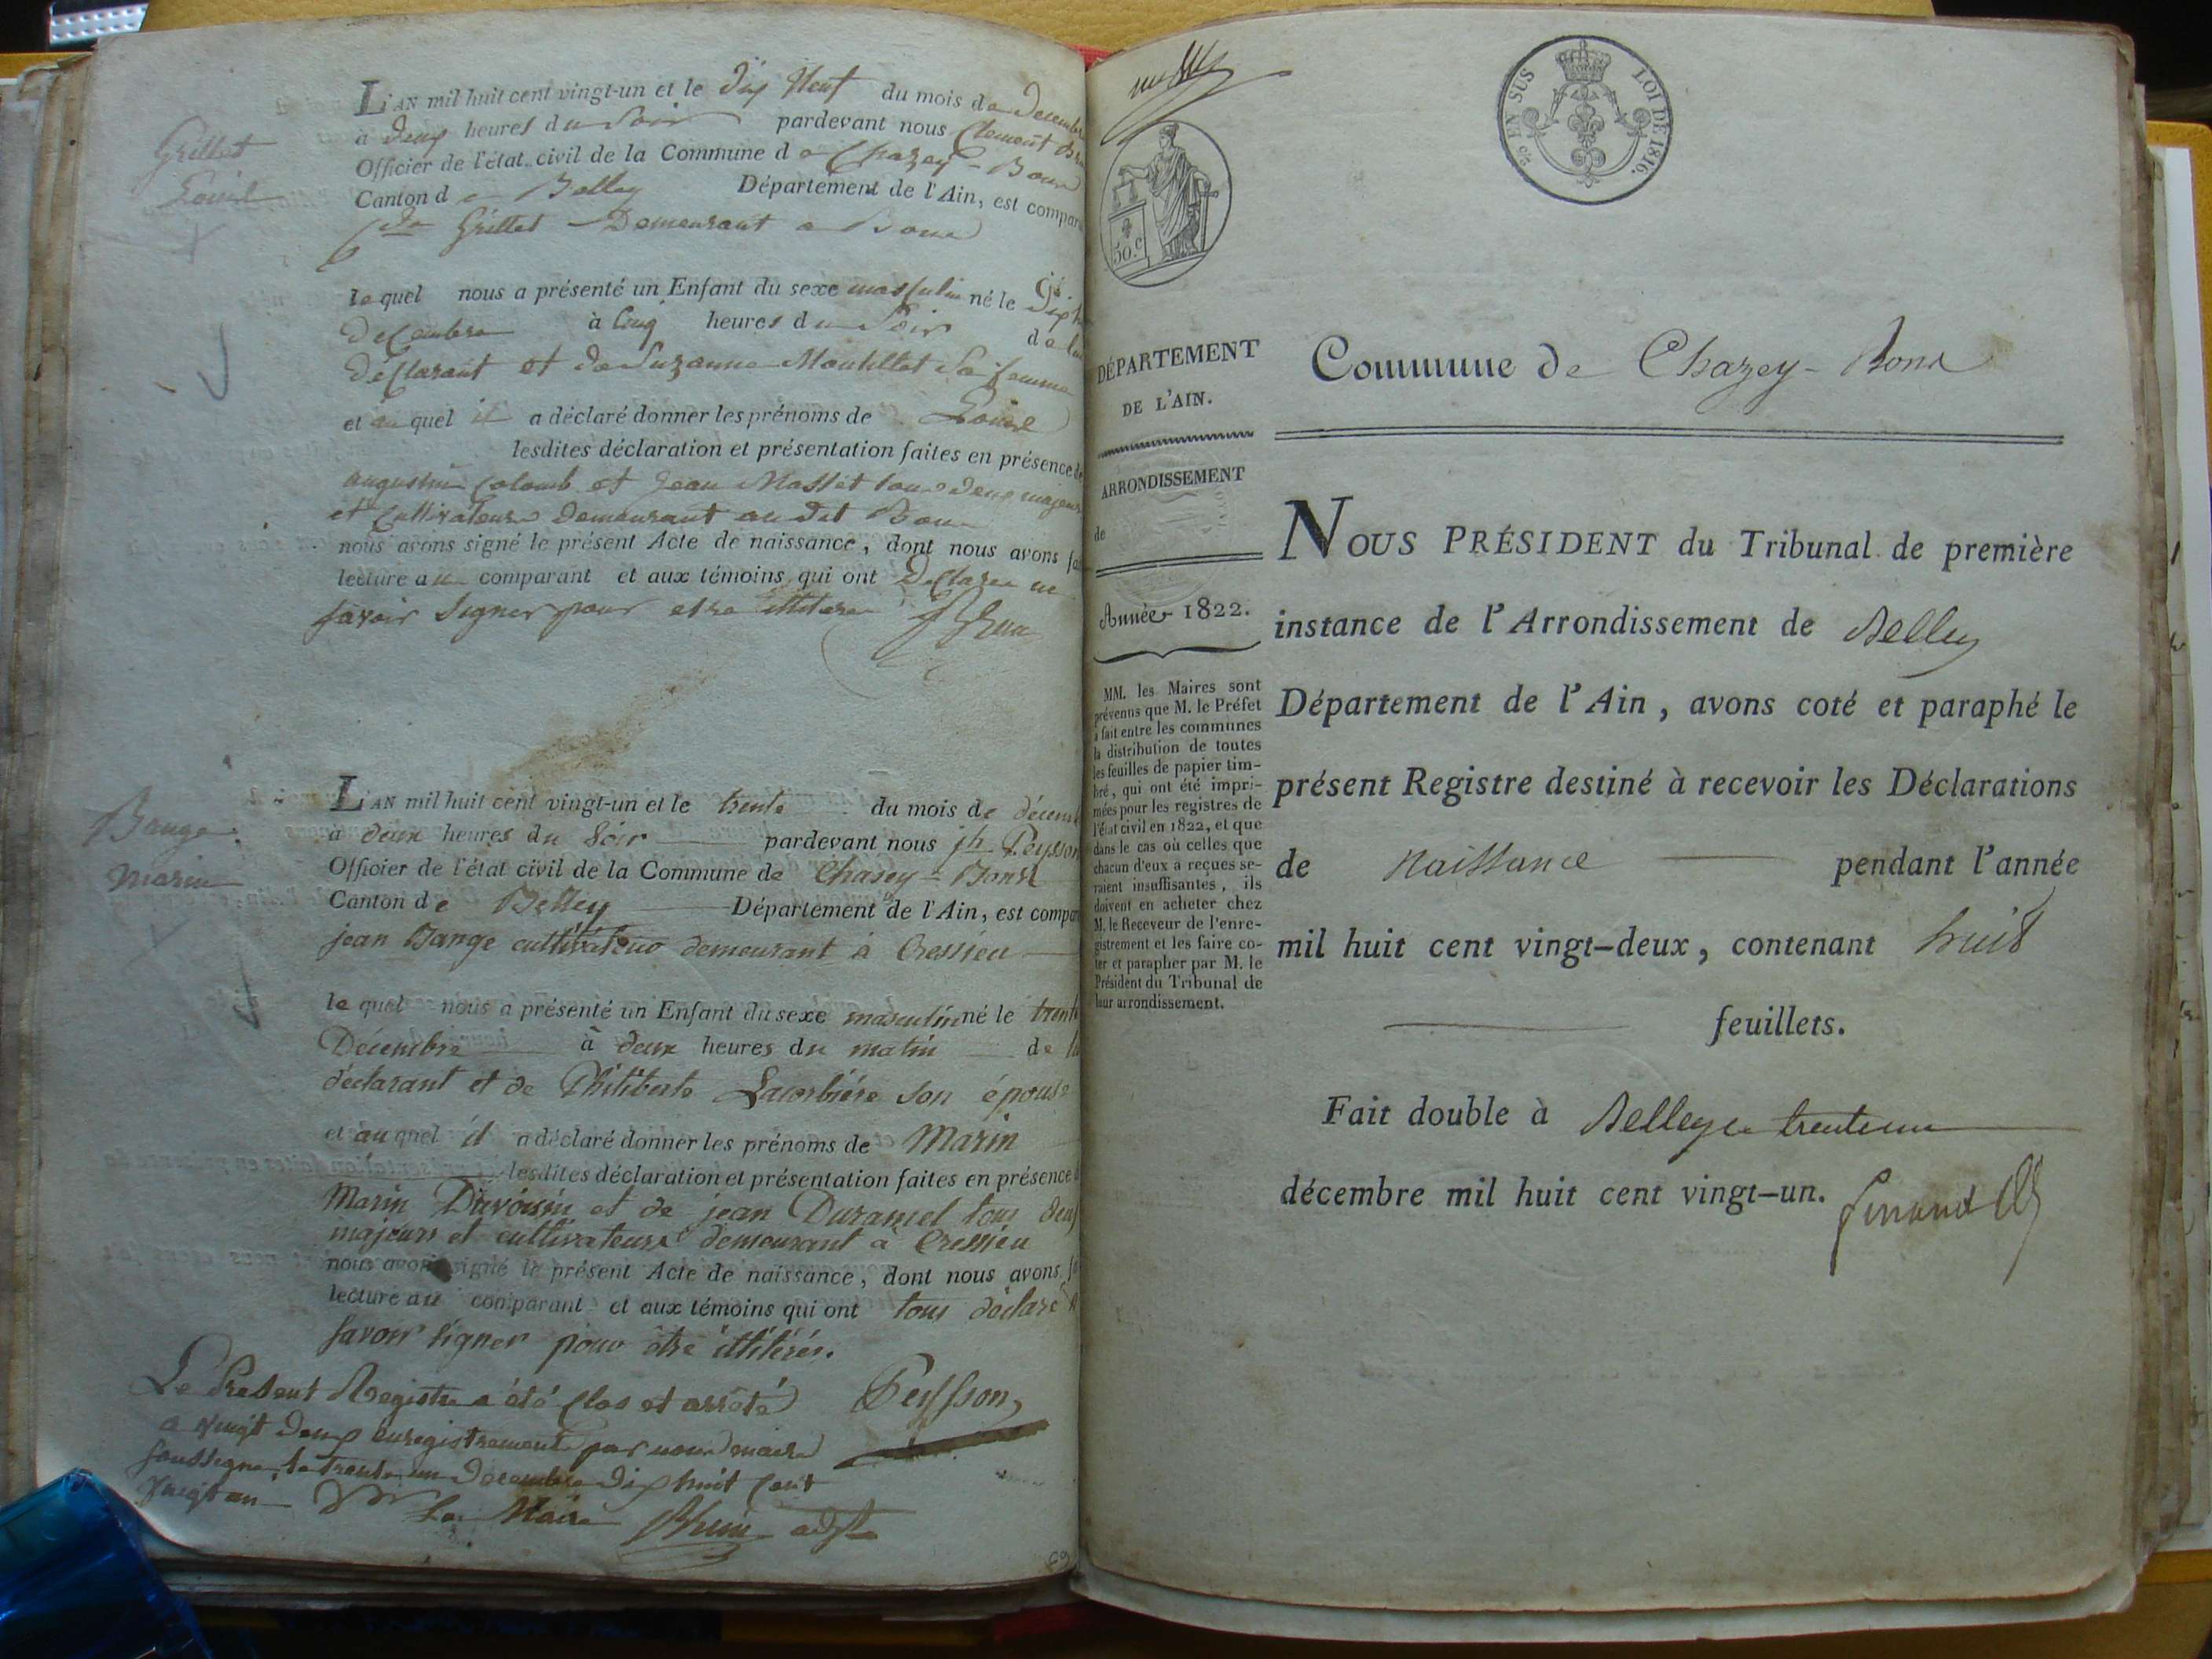 Grillet
Louis
L'AN mil huit cent vingt-un et le dix Neuf du mois de decembre
à deux heures du Soir pardevant nous Clement
Officier de l'état civil de la Commune de Chazey-Bons
Canton de Belley Département de l'Ain, est compar
Grillet Demeurant a Bons
lequel nous a présenté un Enfant du sexe masculin né le
decembre à Cinq heures du Soir de lui
declarant et de Suzanne Montillet Sa femme
et auquel il a déclaré donner les prénoms de Louis
lesdites déclaration et présentation faites en présence de
augustin Colomb et Jean Masset tous deux majeurs
et Cultivateurs Demeurant au dit Bons
nous avons signé le présent Acte de naissance, dont nous avons fai
lecture au comparant et aux témoins qui ont Declaré ne
Savoir Signer pour etre illitere
Bange
Marin
L'AN mil huit cent vingt-un et le trente du mois de décem
à deux heures du Soir pardevant nous jh Peysson
Officier de l'état civil de la Commune de Chasey-Bons
Canton de Belley Département de l'Ain, est compar
jean Bange cultivateur demeurant à Cressieu
lequel nous a présenté un Enfant du sexe masculin né le trente
Décembre à deux heures du matin de lui
déclarant et de Philiberte Lacorbière son épouse
et auquel il a déclaré donner les prénoms de Marin
lesdites déclaration et présentation faites en présence
Marin Davoisin et de jean Duramel tous deux
majeurs et cultivateurs demeurant à Cressieu
nous avons signé le présent Acte de naissance, dont nous avons
lecture au comparant et aux témoins qui ont tous déclaré
Savoir signer pour être illitérés.
Peysson
Le Present Registre a été Clos et arrêté
a vingt deux enregistrements par nous maire
soussigné, le trente un Decembre dix huit cent
vingt un
Le Maire
69
EN SUS LOI DE 1816.
50.c
DÉPARTEMENT
DE L'AIN.
ARRONDISSEMENT
de
Année 1822.
MM. les Maires sont
prévenus que M. le Préfet
a fait entre les communes
la distribution de toutes
les feuilles de papier tim-
bré, qui ont été impri-
mées pour les registres de
l'état civil en 1822, et que
dans le cas où celles que
chacun d'eux a reçues se-
raient insuffisantes, ils
doivent en acheter chez
M. le Receveur de l'enre-
gistrement et les faire co-
ter et parapher par M. le
Président du Tribunal de
leur arrondissement.
Commune de Chazey-Bons
NOUS PRÉSIDENT du Tribunal de première
instance de l'Arrondissement de Belley
Département de l'Ain, avons coté et paraphé le
présent Registre destiné à recevoir les Déclarations
de Naissance pendant l'année
mil huit cent vingt-deux, contenant huit
feuillets.
Fait double à Belley le trente un
décembre mil huit cent vingt-un.